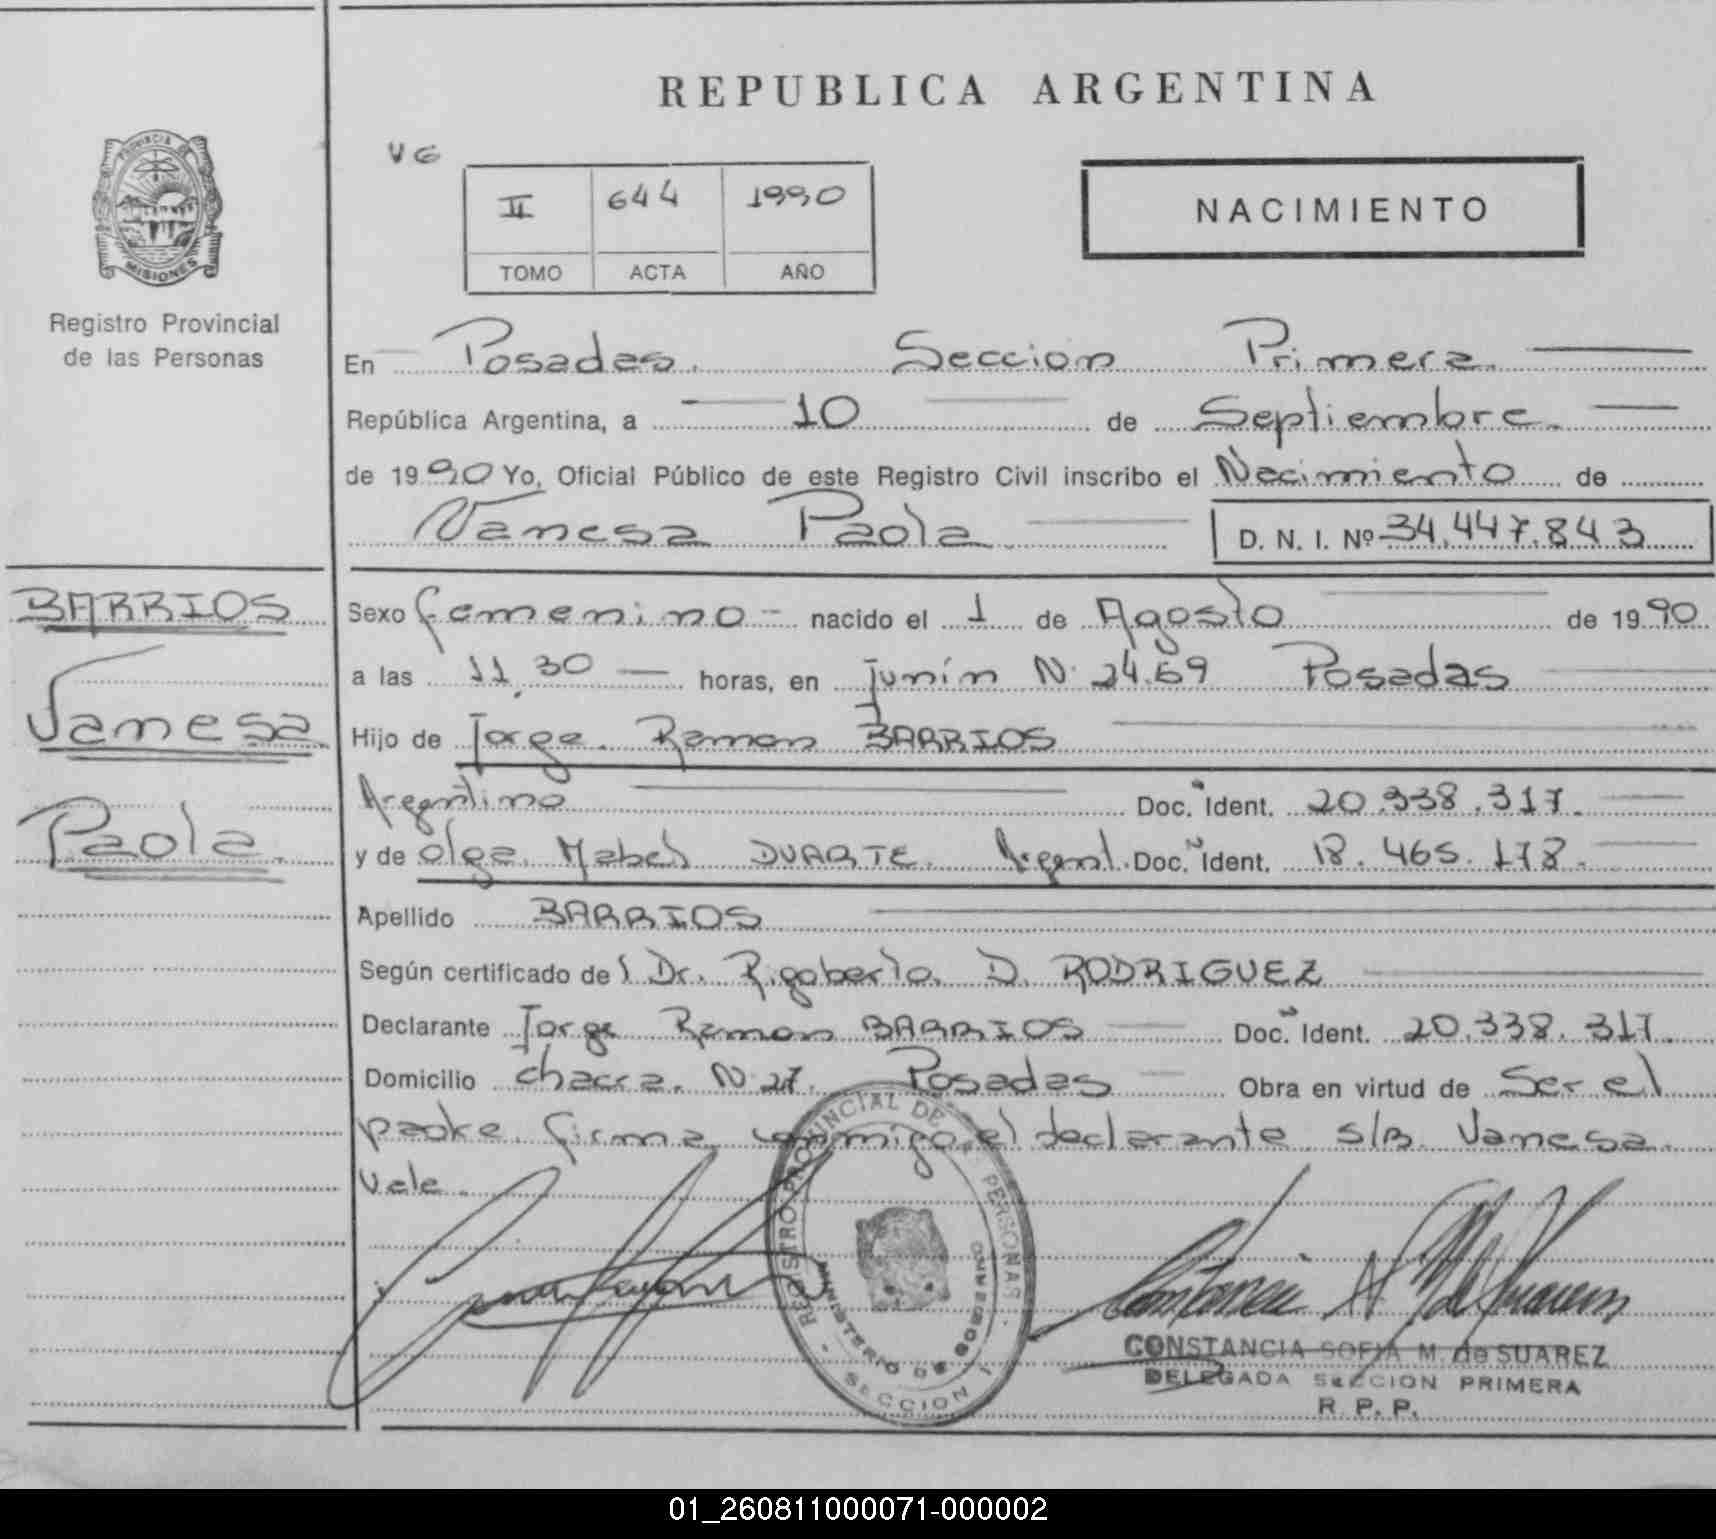 REPUBLICA ARGENTINA
PROVINCIA DE
MISIONES
Registro Provincial
de las Personas
VG
II 644 1990
TOMO ACTA AÑO
NACIMIENTO
En Posadas. Seccion Primera.
República Argentina, a 10 de Septiembre.
de 1990 Yo, Oficial Público de este Registro Civil inscribo el Nacimiento de
Vanesa Paola D. N. I. Nº 34.447.843
BARRIOS
Vanesa
Paola.
Sexo femenino nacido el 1 de Agosto de 1990
a las 11,30 horas, en Junín N. 24.69 Posadas
Hijo de Jorge. Ramon BARRIOS
Argentino Doc. Ident. 20.338.317.
y de Olga. Mabel DUARTE. Argent. Doc. Ident. 18.465.178.
Apellido BARRIOS
Según certificado del Dr. Rigoberto. D. RODRIGUEZ
Declarante Jorge Ramon BARRIOS Doc. Ident. 20.338.317.
Domicilio chacra. N 27. Posadas Obra en virtud de Ser el
padre. firma conmigo el declarante s/B. Vanesa.
Vale.
REGISTRO PROVINCIAL DE LAS PERSONAS
MINISTERIO DE GOBIERNO
SECCION I
CONSTANCIA SOFIA M. de SUAREZ
DELEGADA SECCION PRIMERA
R. P. P.
01_260811000071-000002